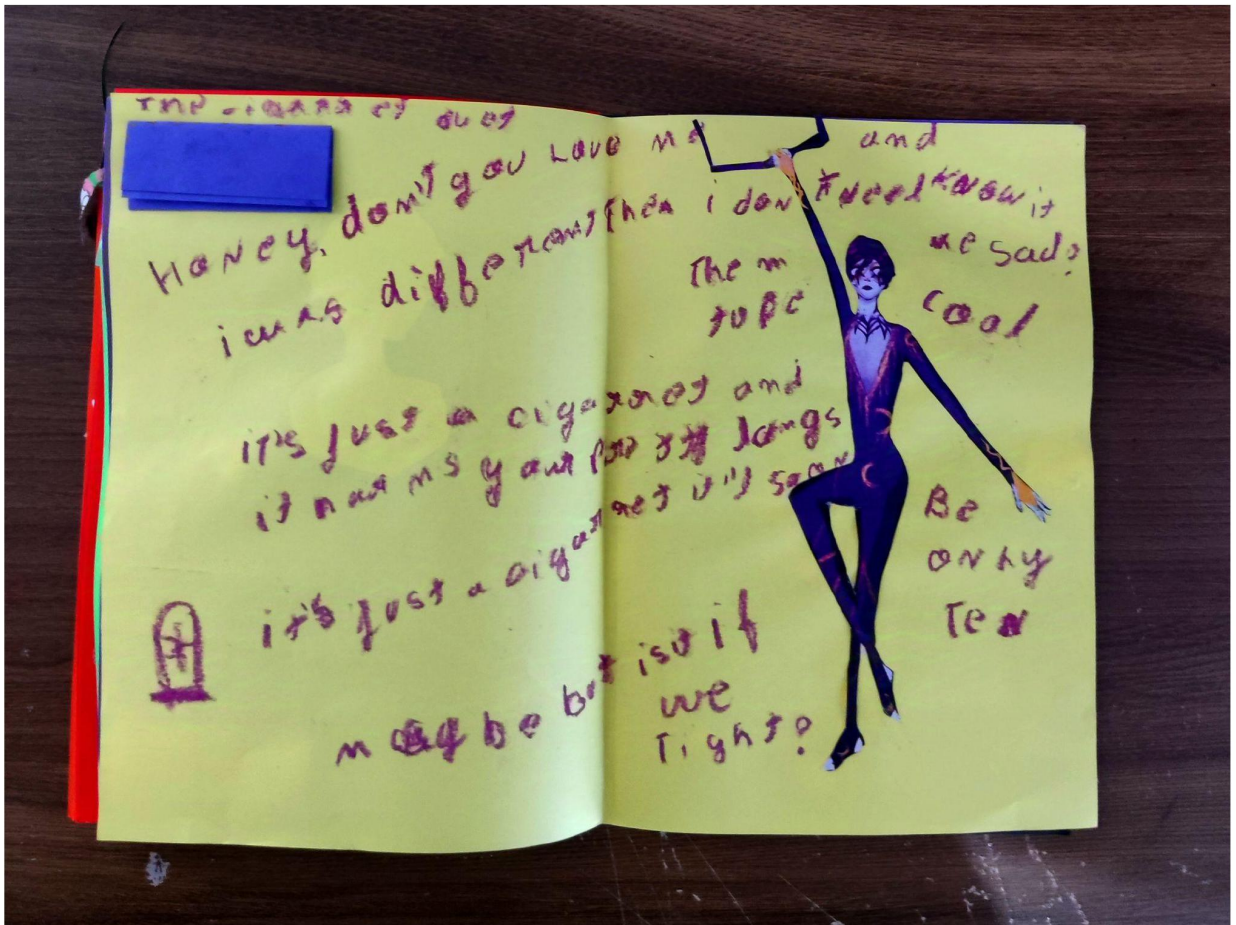 Honey, don't you Love me and
i was different Then i don't need know it
Them me sad?
to be cool
it's just a cigarret and
it harms your lungs
it's just a cigarret it'll soon
Be
only
Ten
maybe but isv if
we
Tight?